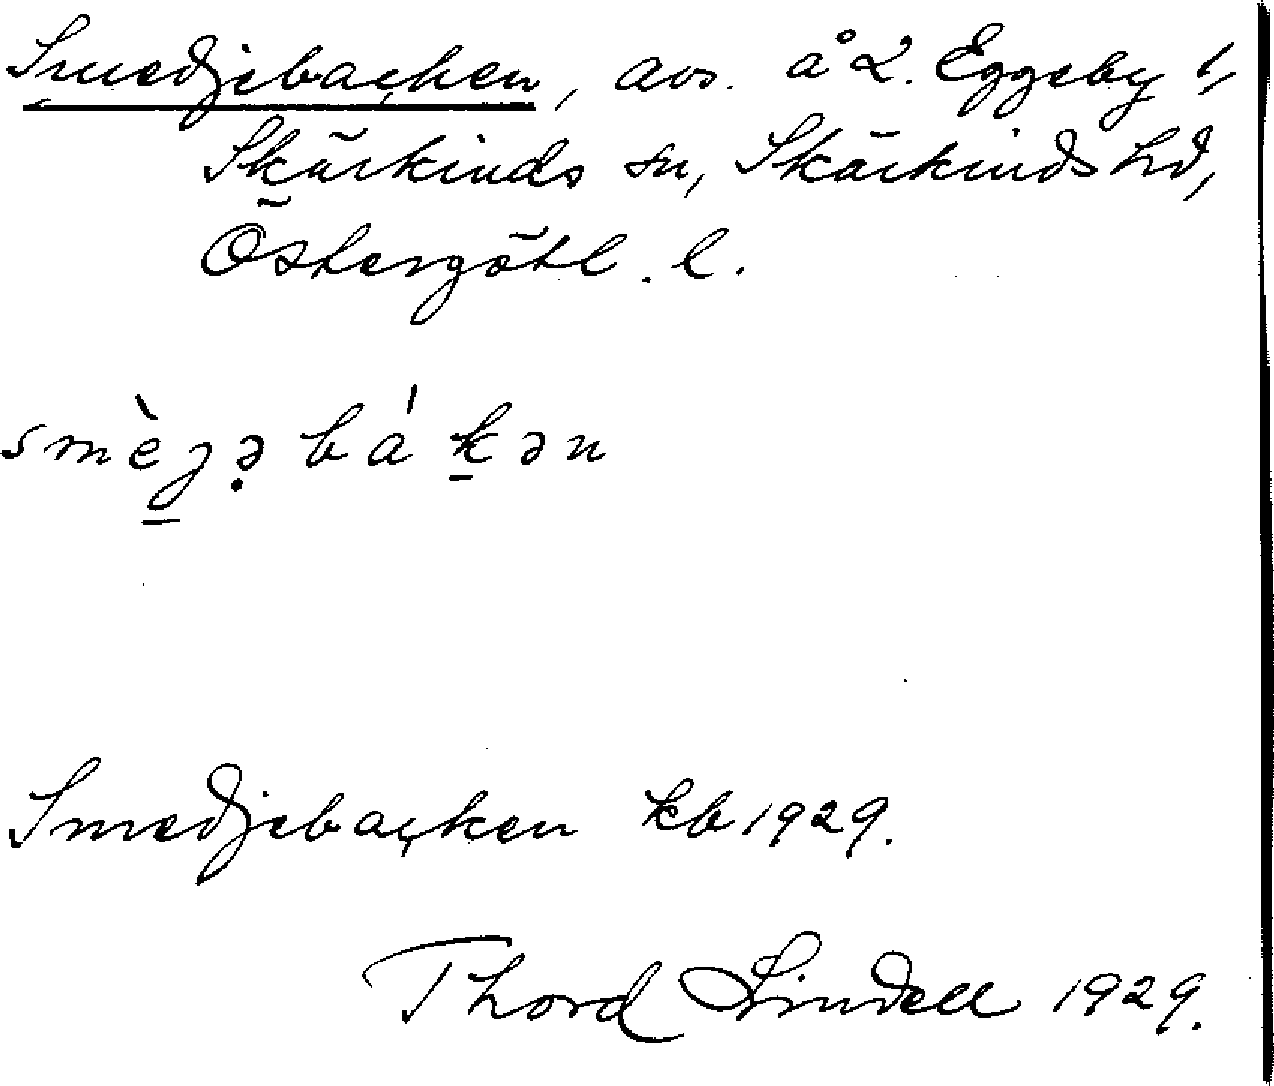 Smedjebacken, avs. å L. Eggeby 1,
Skärkinds sn, Skärkinds hd,
Östergötl. l.
smèʒə̣bákən
Smedjebacken kb 1929.
Thord Lindell 1929.